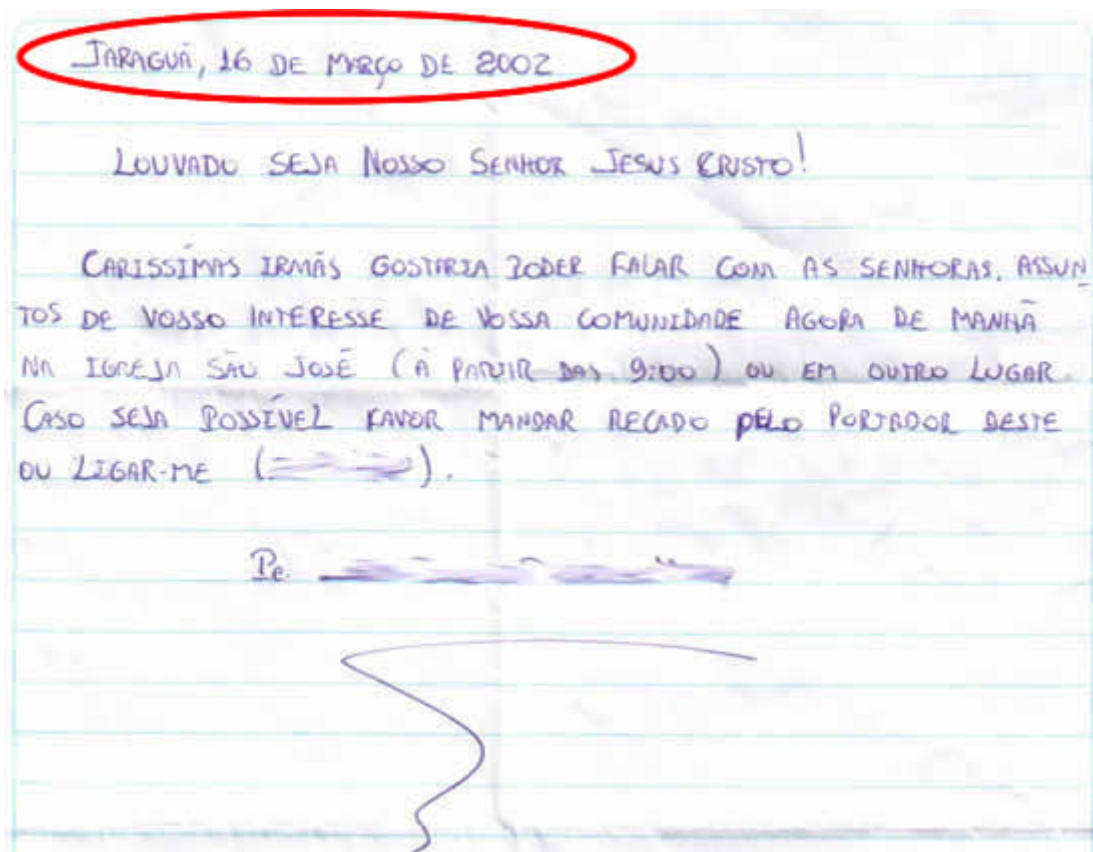 JARAGUÁ, 16 DE MARÇO DE 2002
LOUVADO SEJA NOSSO SENHOR JESUS CRISTO!
CARISSÍMAS IRMÃS GOSTARIA PODER FALAR COM AS SENHORAS. ASSUN
TOS DE VOSSO INTERESSE DE VOSSA COMUNIDADE AGORA DE MANHÃ
NA IGREJA SÃO JOSÉ (À PARTIR DAS 9:00) OU EM OUTRO LUGAR.
CASO SEJA POSSÍVEL FAVOR MANDAR RECADO PELO PORTADOR DESTE
OU LIGAR-ME ( ).
Pe.